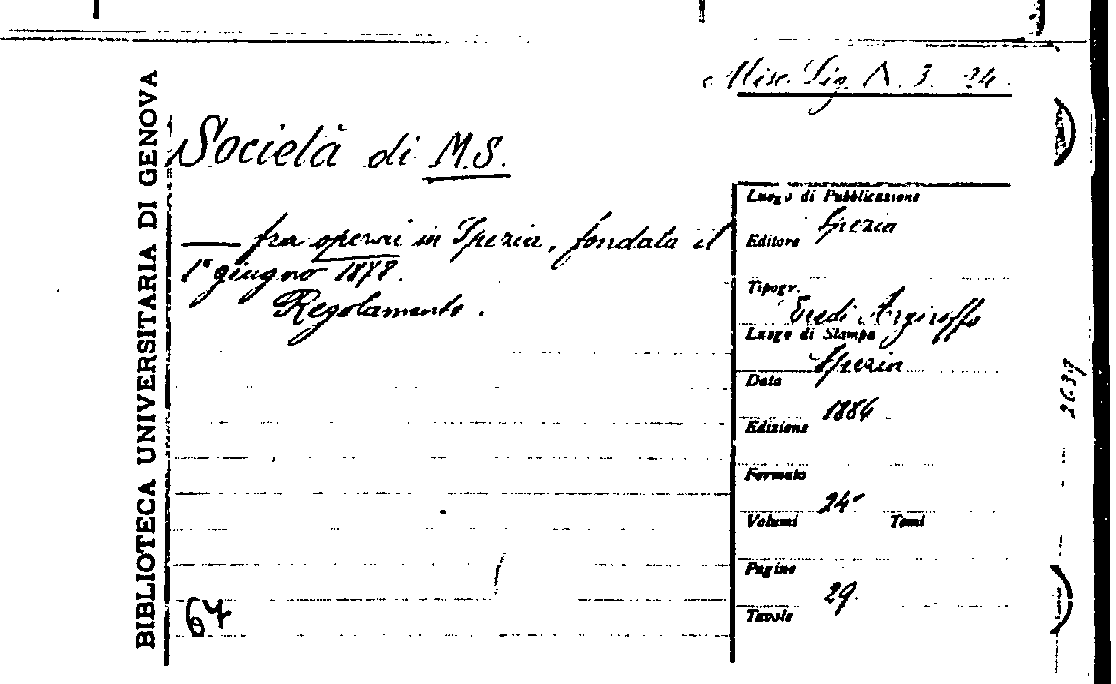 Misc. Lig. A. 3. 24.
BIBLIOTECA UNIVERSITARIA DI GENOVA
Società di M.S.
—— fra operai in Spezia, fondata il
1° giugno 1878.
Regolamento.
Luogo di Pubblicazione
Spezia
Editore
Tipogr.
Eredi Argiroffo
Luogo di Stampa
Spezia
Data
1884
Edizione
Formato
24°
Volumi Tomi
Pagine
29.
Tavole
67
2639